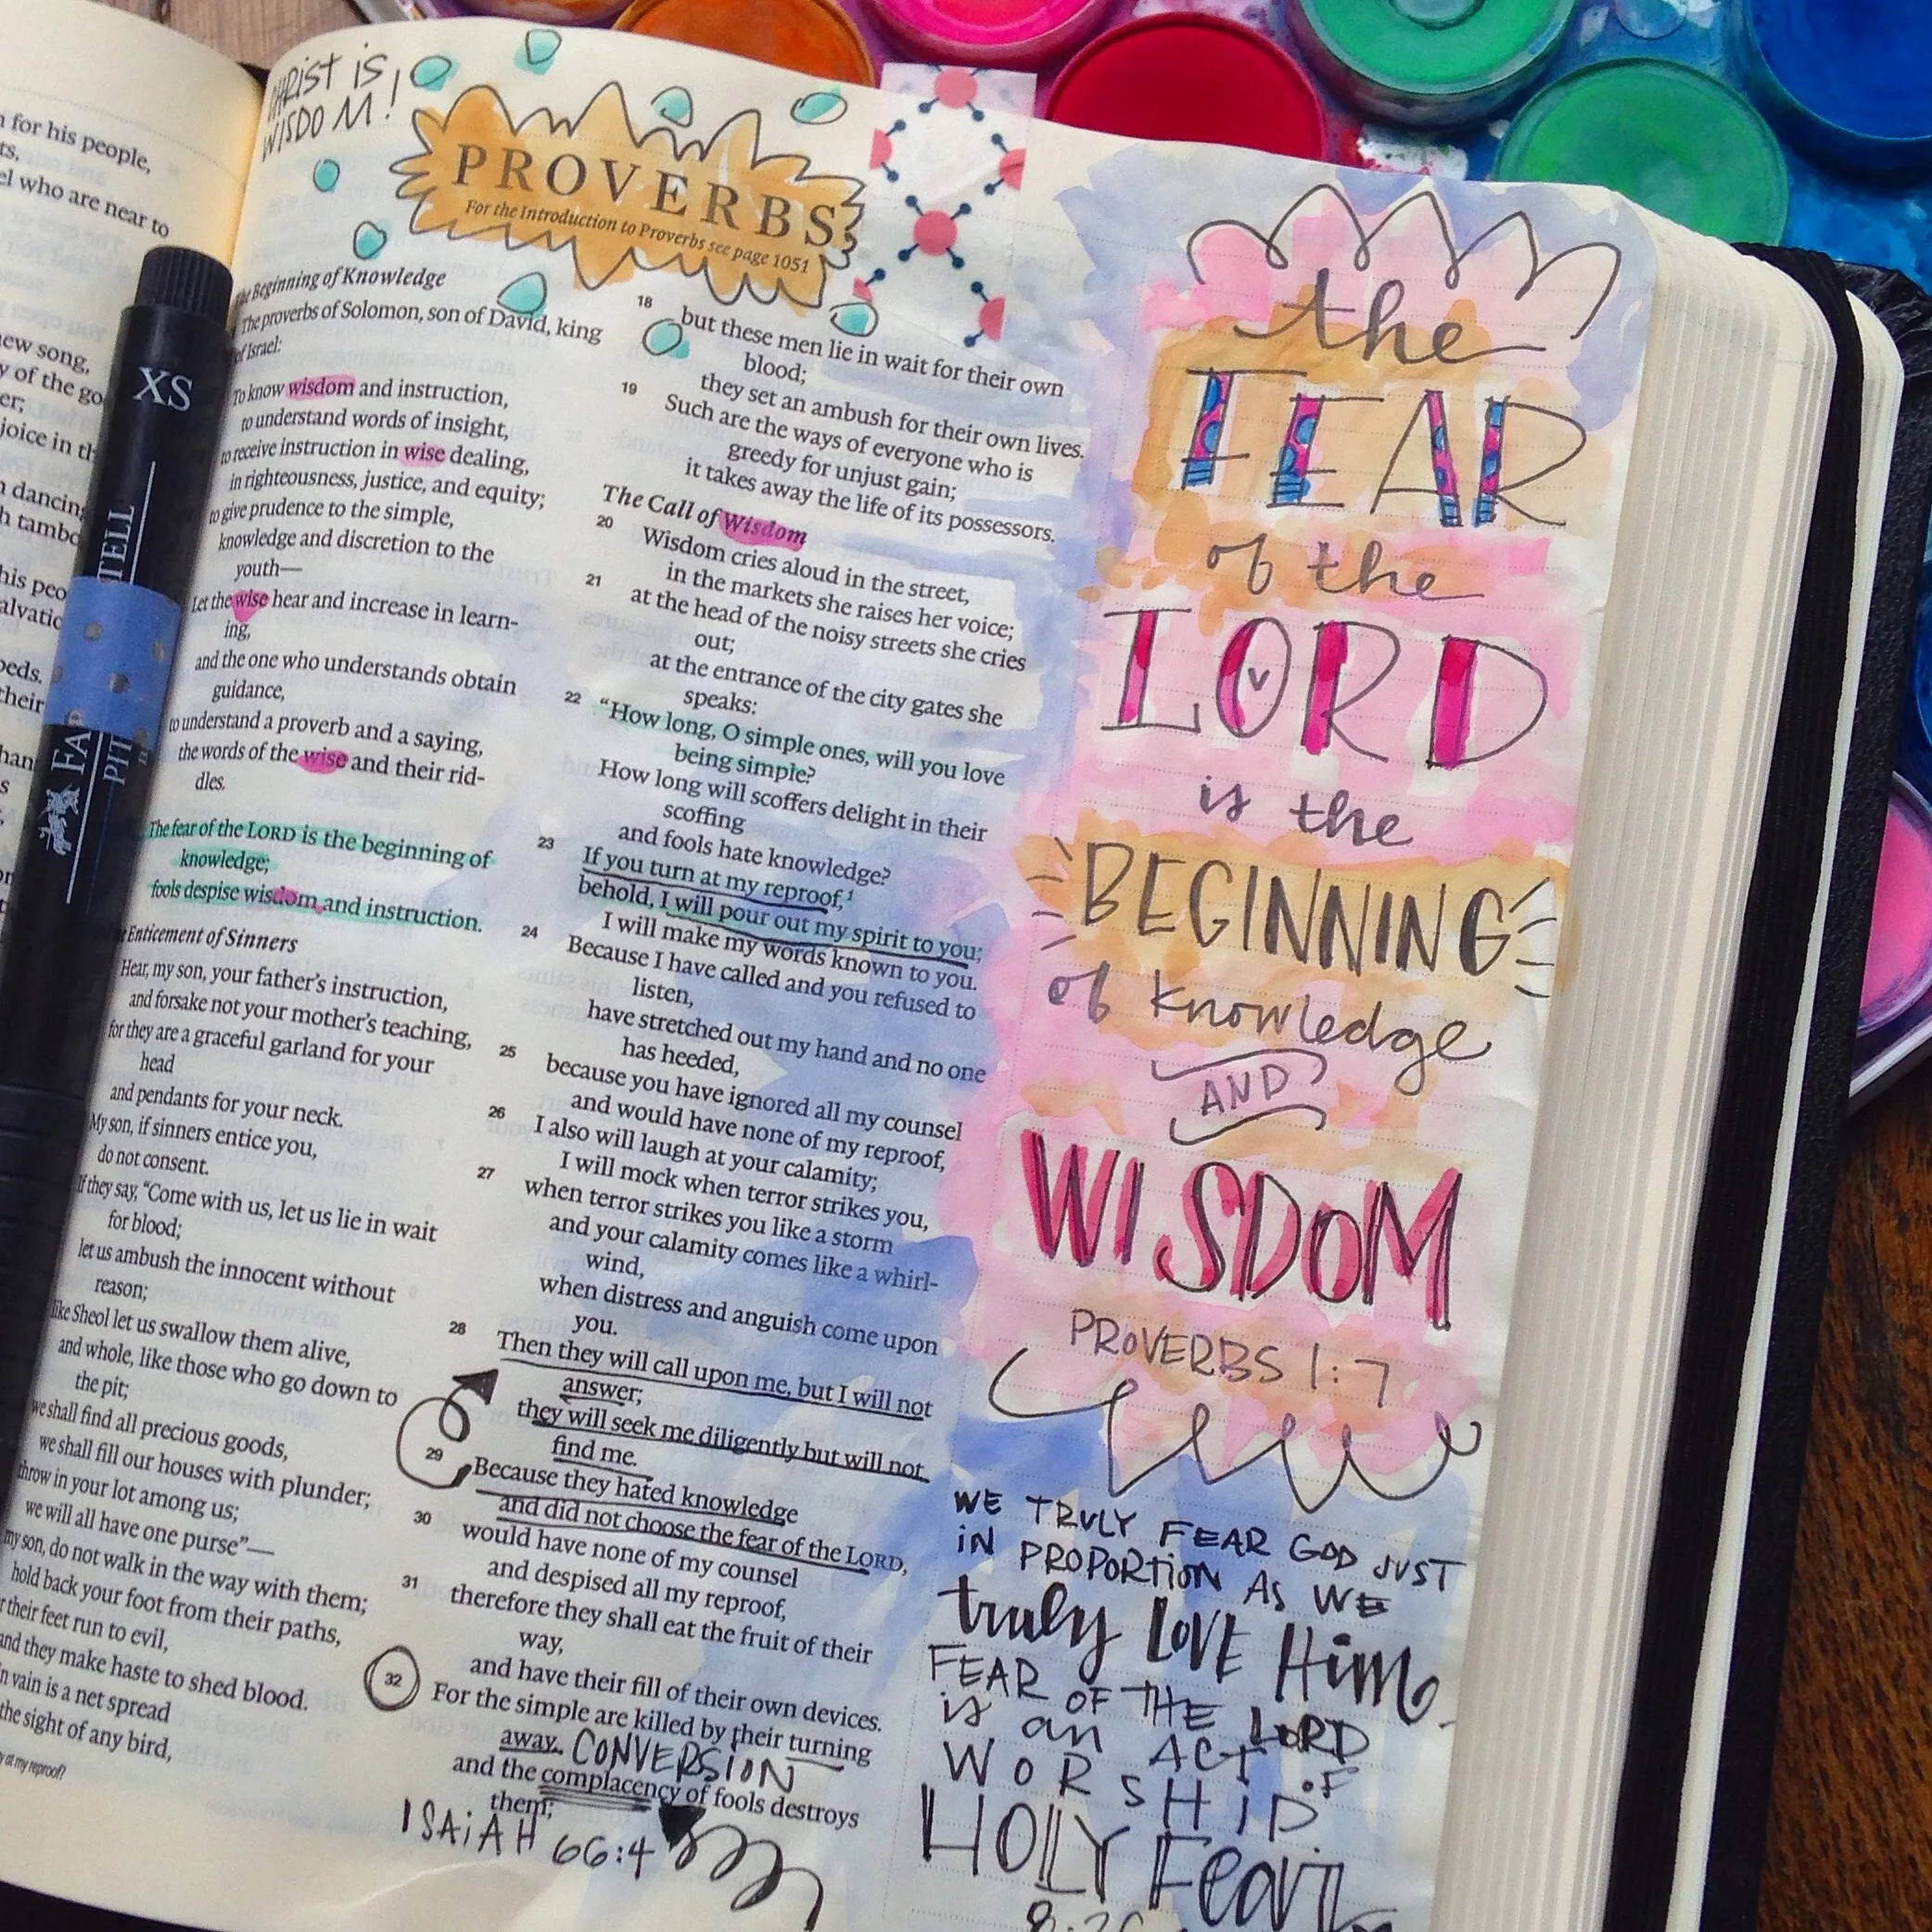 CHRIST IS
WISDOM!
PROVERBS
For the Introduction to Proverbs see page 1051
for his people,
el who are near to
new song,
joice in
dancing
Beginning of Knowledge
The proverbs of Solomon, son of David, king
of Israel:
To know wisdom and instruction,
to understand words of insight,
to receive instruction in wise dealing,
in righteousness, justice, and equity;
to give prudence to the simple,
knowledge and discretion to the
youth—
Let the wise hear and increase in learn-
ing,
and the one who understands obtain
guidance,
to understand a proverb and a saying,
the words of the wise and their rid-
dles.
The fear of the LORD is the beginning of
knowledge;
fools despise wisdom and instruction.
Enticement of Sinners
Hear, my son, your father's instruction,
and forsake not your mother's teaching,
for they are a graceful garland for your
head
and pendants for your neck.
My son, if sinners entice you,
do not consent.
If they say, "Come with us, let us lie in wait
for blood;
let us ambush the innocent without
reason;
like Sheol let us swallow them alive,
and whole, like those who go down to
the pit;
we shall find all precious goods,
we shall fill our houses with plunder;
throw in your lot among us;
we will all have one purse"—
my son, do not walk in the way with them;
hold back your foot from their paths,
their feet run to evil,
and they make haste to shed blood.
in vain is a net spread
the sight of any bird,
at my reproof?
18 but these men lie in wait for their own
blood;
they set an ambush for their own lives.
19 Such are the ways of everyone who is
greedy for unjust gain;
it takes away the life of its possessors.
The Call of Wisdom
20 Wisdom cries aloud in the street,
in the markets she raises her voice;
21 at the head of the noisy streets she cries
out;
at the entrance of the city gates she
speaks:
22 "How long, O simple ones, will you love
being simple?
How long will scoffers delight in their
scoffing
and fools hate knowledge?
23 If you turn at my reproof,1
behold, I will pour out my spirit to you;
I will make my words known to you.
24 Because I have called and you refused to
listen,
have stretched out my hand and no one
has heeded,
25 because you have ignored all my counsel
and would have none of my reproof,
26 I also will laugh at your calamity;
I will mock when terror strikes you,
27 when terror strikes you like a storm
and your calamity comes like a whirl-
wind,
when distress and anguish come upon
you.
28 Then they will call upon me, but I will not
answer;
they will seek me diligently but will not
find me.
29 Because they hated knowledge
and did not choose the fear of the LORD,
30 would have none of my counsel
and despised all my reproof,
31 therefore they shall eat the fruit of their
way,
and have their fill of their own devices.
32 For the simple are killed by their turning
away, CONVERSION
and the complacency of fools destroys
them;
ISAIAH 66:4
the
FEAR
of the
LORD
is the
BEGINNING
of knowledge
AND
WISDOM
PROVERBS 1:7
WE TRULY FEAR GOD JUST
IN PROPORTION AS WE
truly LOVE Him.
FEAR OF THE LORD
is an ACT OF
WORSHIP.
HOLY Fear
XS